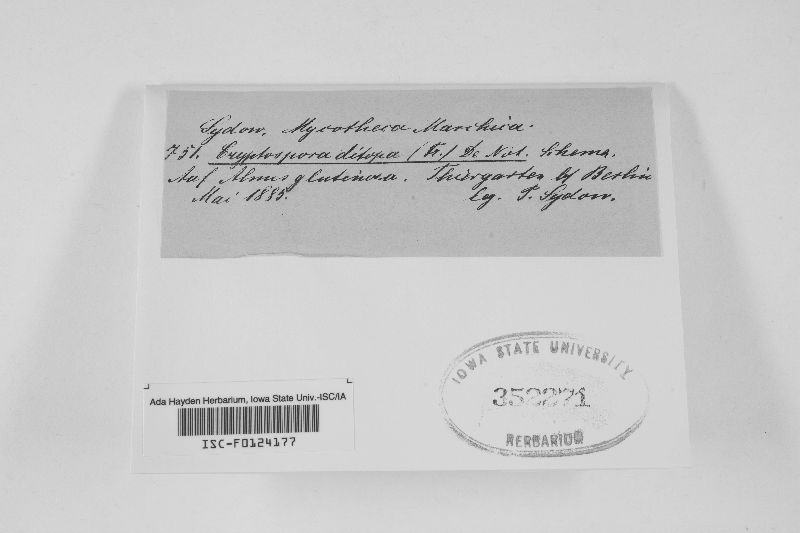 Sydow, Mycotheca Marchica.
751. Cryptospora ditopa (Fr.) De Not. Schema.
Auf Alnus glutinosa. Thiergarten bf Berlin
Mai 1885. lg. P. Sydow.
IOWA STATE UNIVERSITY
352271
HERBARIUM
Ada Hayden Herbarium, Iowa State Univ.-ISC/IA
ISC-F0124177